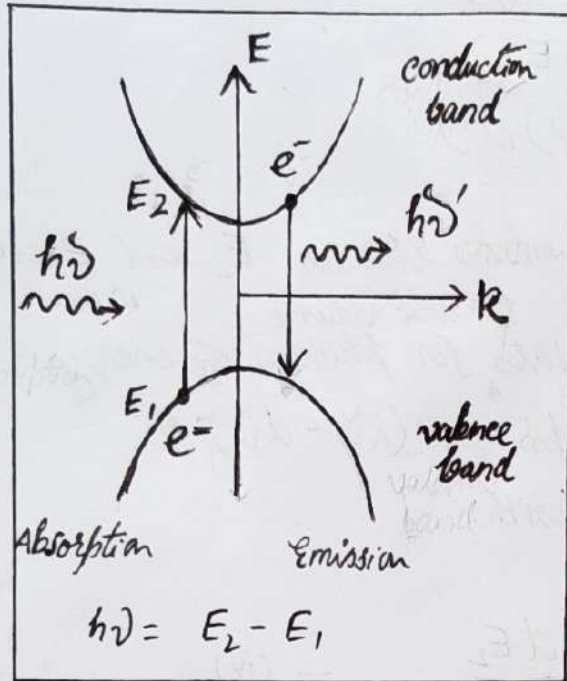 E
conduction
band
e⁻
E₂
hν
hν'
k
E₁
e⁻
valence
band
Absorption
Emission
hν = E₂ - E₁